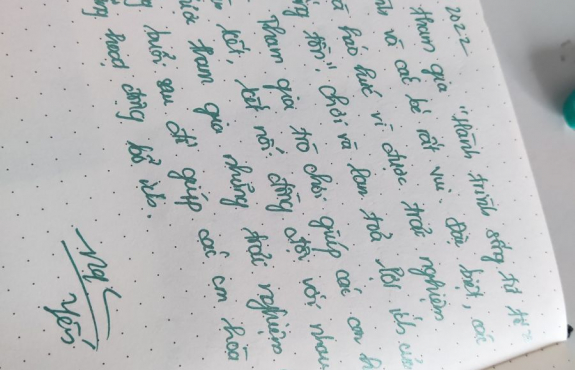 2022
tham gia "Hành trình sống tử tế"
và các bé rất vui. Đặc biệt, các
háo hức vì được trải nghiệm
chơi và lan tỏa lợi ích
Tham gia trò chơi giúp các con
kết, kết nối đồng đội với nhau
tham gia những trải nghiệm
buổi sau để giúp các con hòa
hoạt động bổ ích.
Yến